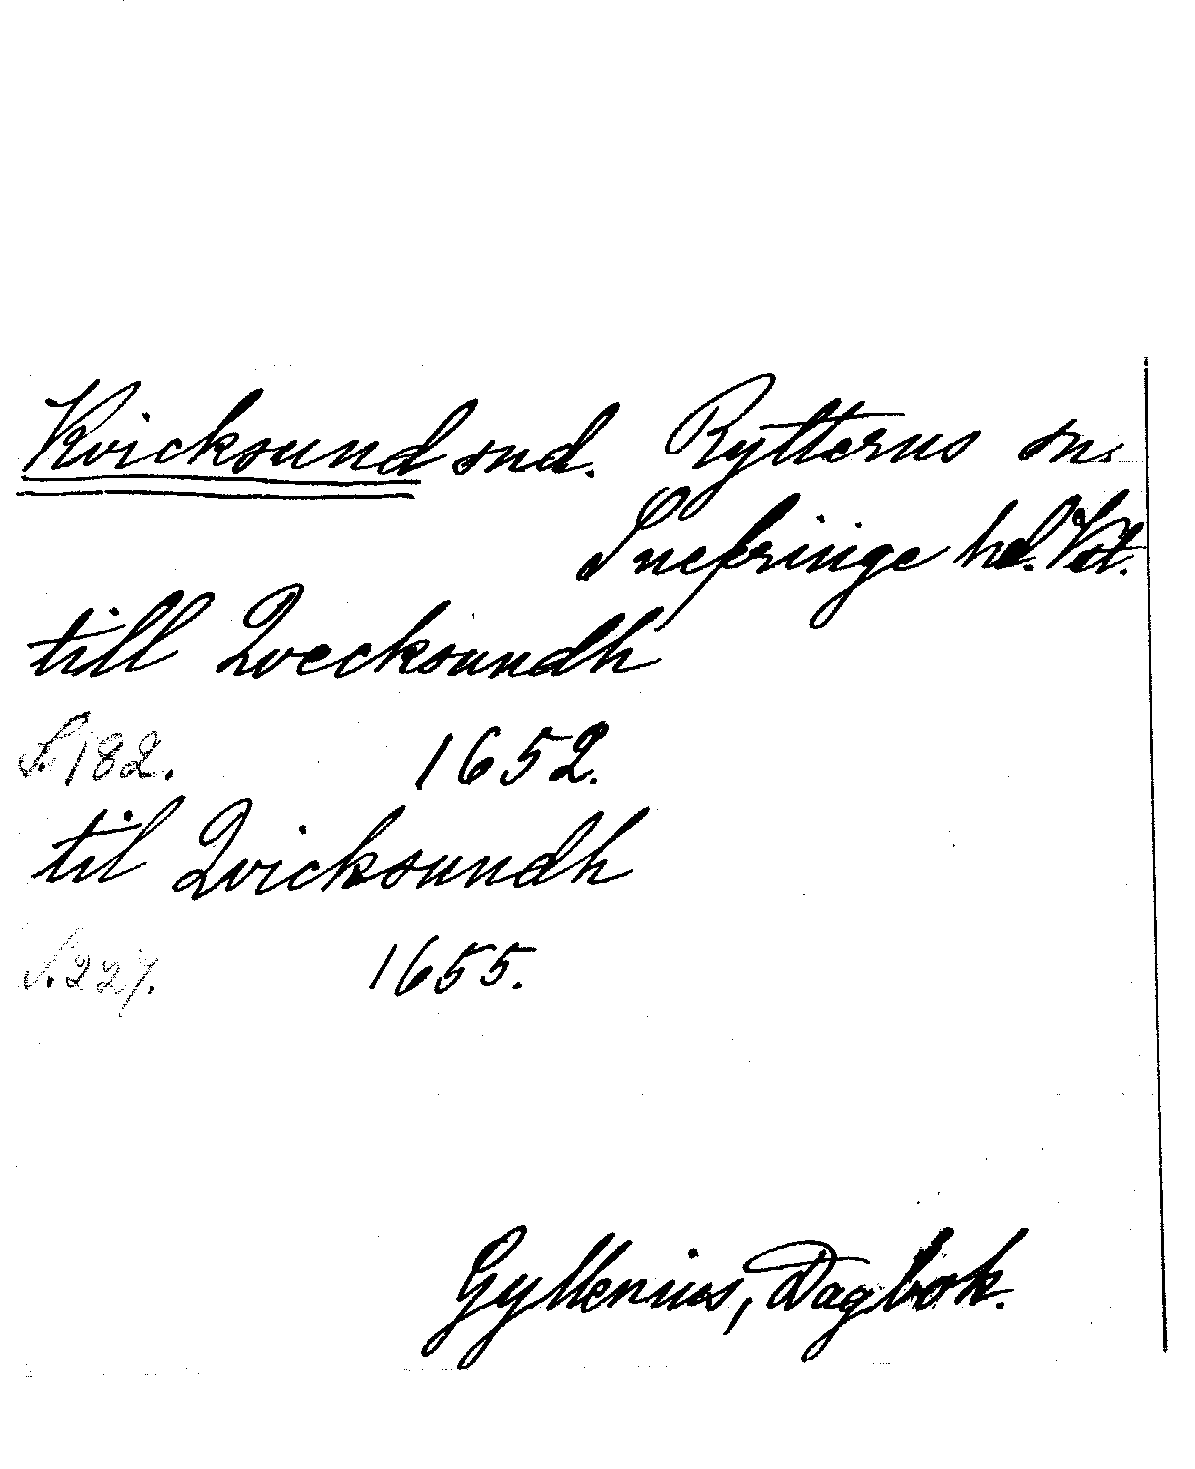 Kvicksund snd. Rytterus sn.
Snefringe hd. Vst.
till Qvecksundh
S. 182. 1652.
til Qvicksundh
S. 227. 1655.
Gyllenius, Dagbok.